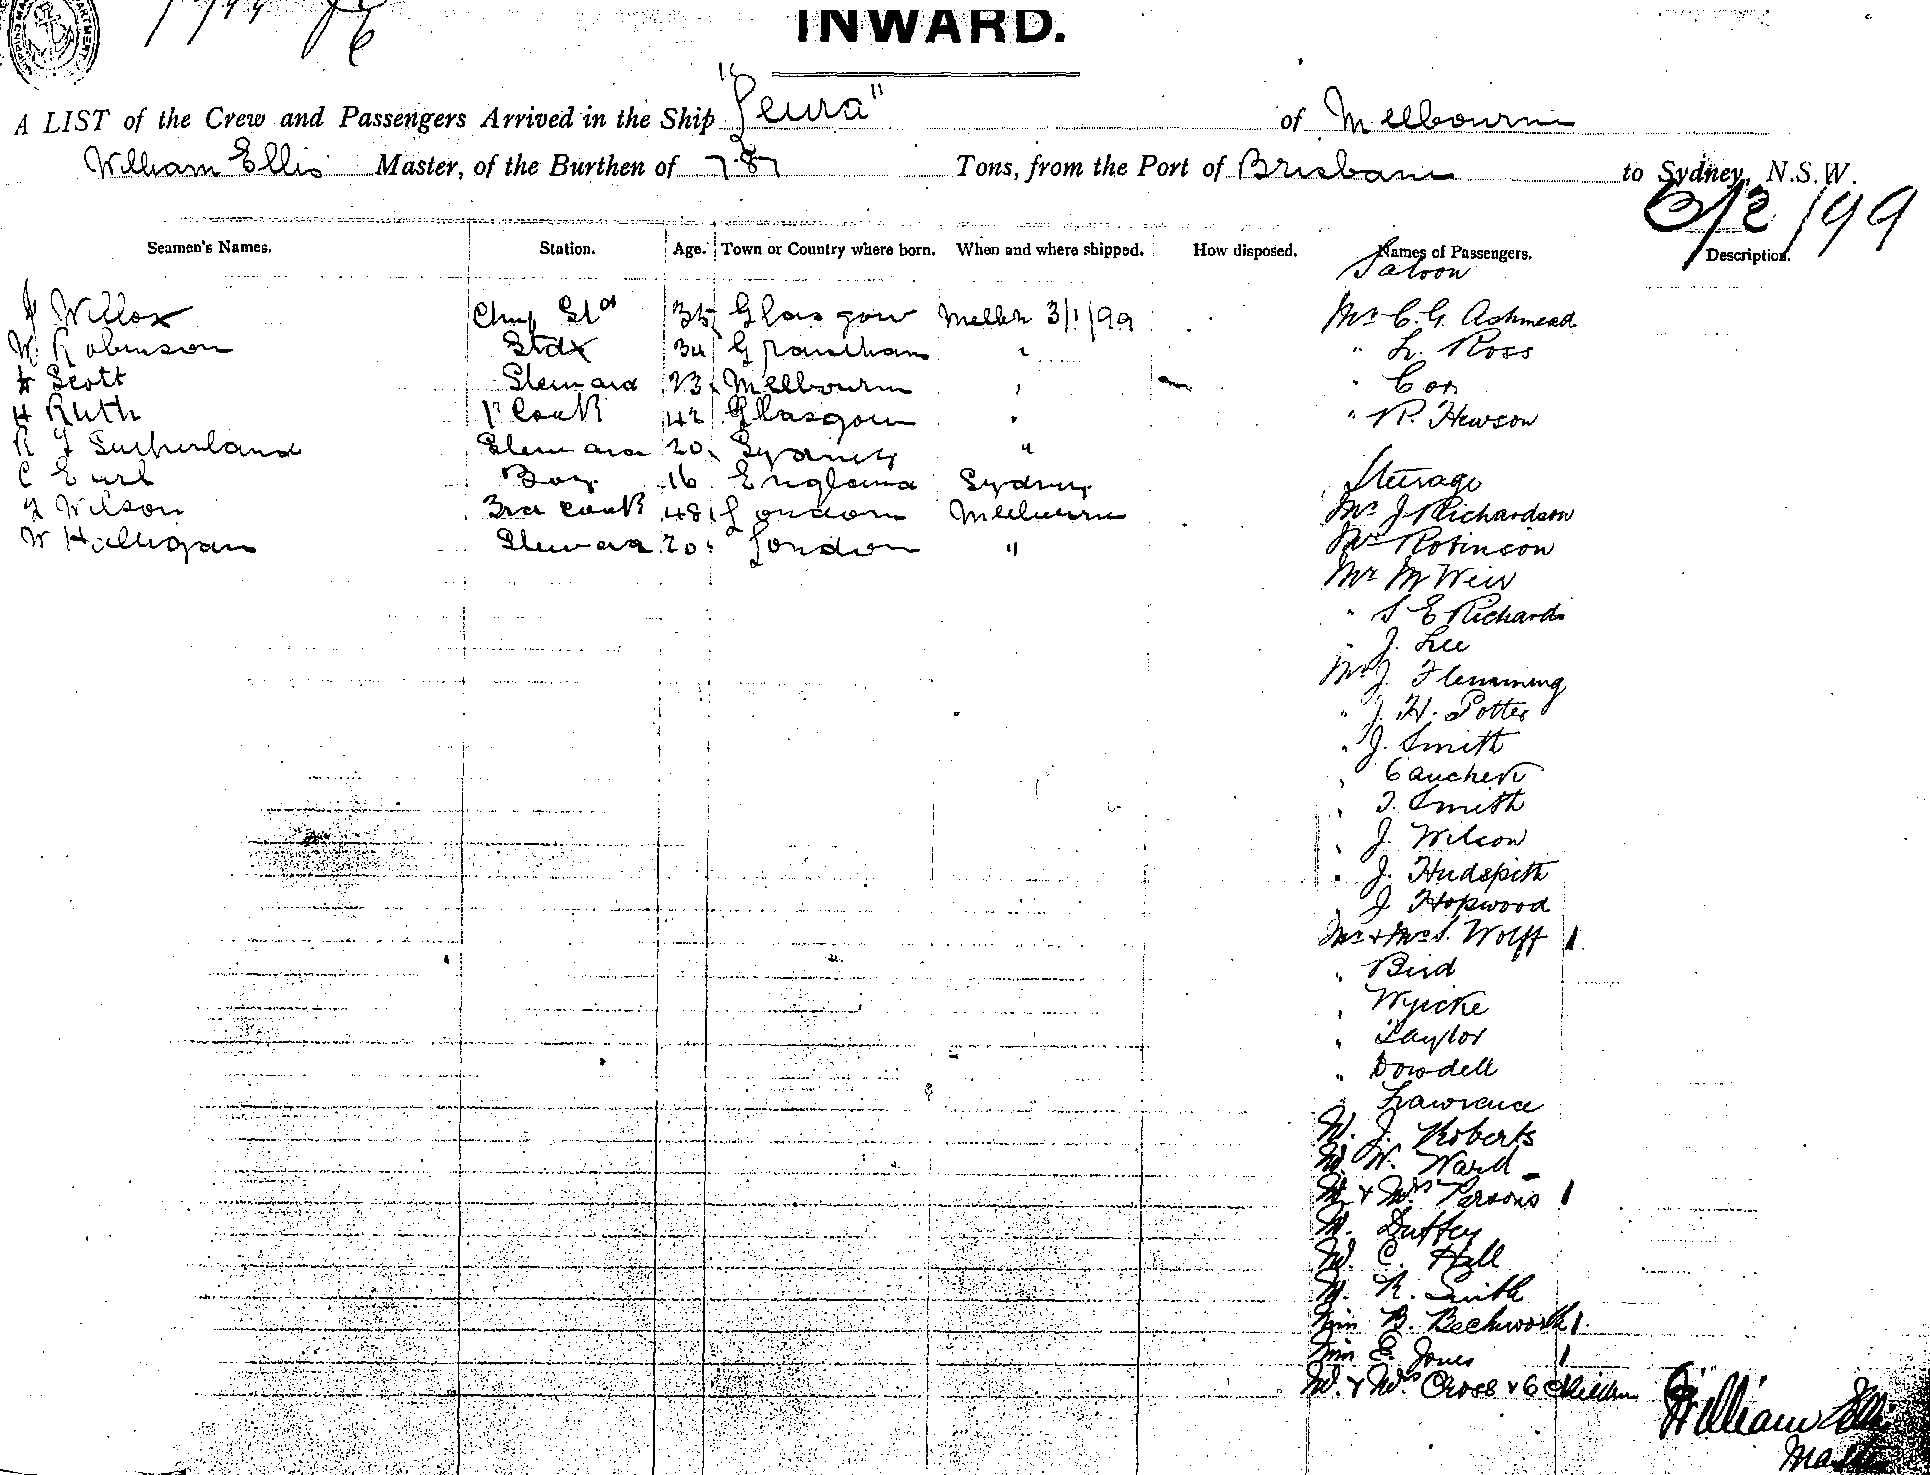 INWARD.
A LIST of the Crew and Passengers Arrived in the Ship "Leura" of Melbourne
William Ellis Master, of the Burthen of 787 Tons, from the Port of Brisbane to Sydney, N.S.W.
6/2/99
Seamen's Names. Station. Age. Town or Country where born. When and where shipped. How disposed. Names of Passengers. Description.
Saloon
Willox 35 Glasgow Melbn 3/1/99 Mr C. G. Ashmead
W. Robinson Stdx 34 Grantham " " L. Ross
Scott Steward 23 Melbourne " " Cox
H Ruth 1st Cook 42 Glasgow " " R. Hewson
R J Sutherland Steward 20 Sydney "
C Earl Boy 16 England Sydney Steerage
Wilson 3rd Cook 48 London Melbourne Mr J Richardson
W Halligan Steward 20 London " Mr Robinson
Mr M Weir
" S E Richards
" J. Lee
Mr J. Flemming
" J. H. Potter
" J. Smith
"
" T. Smith
" J. Wilson
" J. Hudspith
J Hopwood
Mr & Mrs S. Wolff 1
" Bird
" Wyicke
" Taylor
" Dowdell
" Lawrence
M. J. Roberts
M. W. Ward
M. & Mrs Parsons 1
M. Duffey
M. C. Hill
M. R. Smith
Miss B. Beckworth 1
Miss E. Jones 1
M. & Mrs Cross & 6 Children
William Ellis
Master